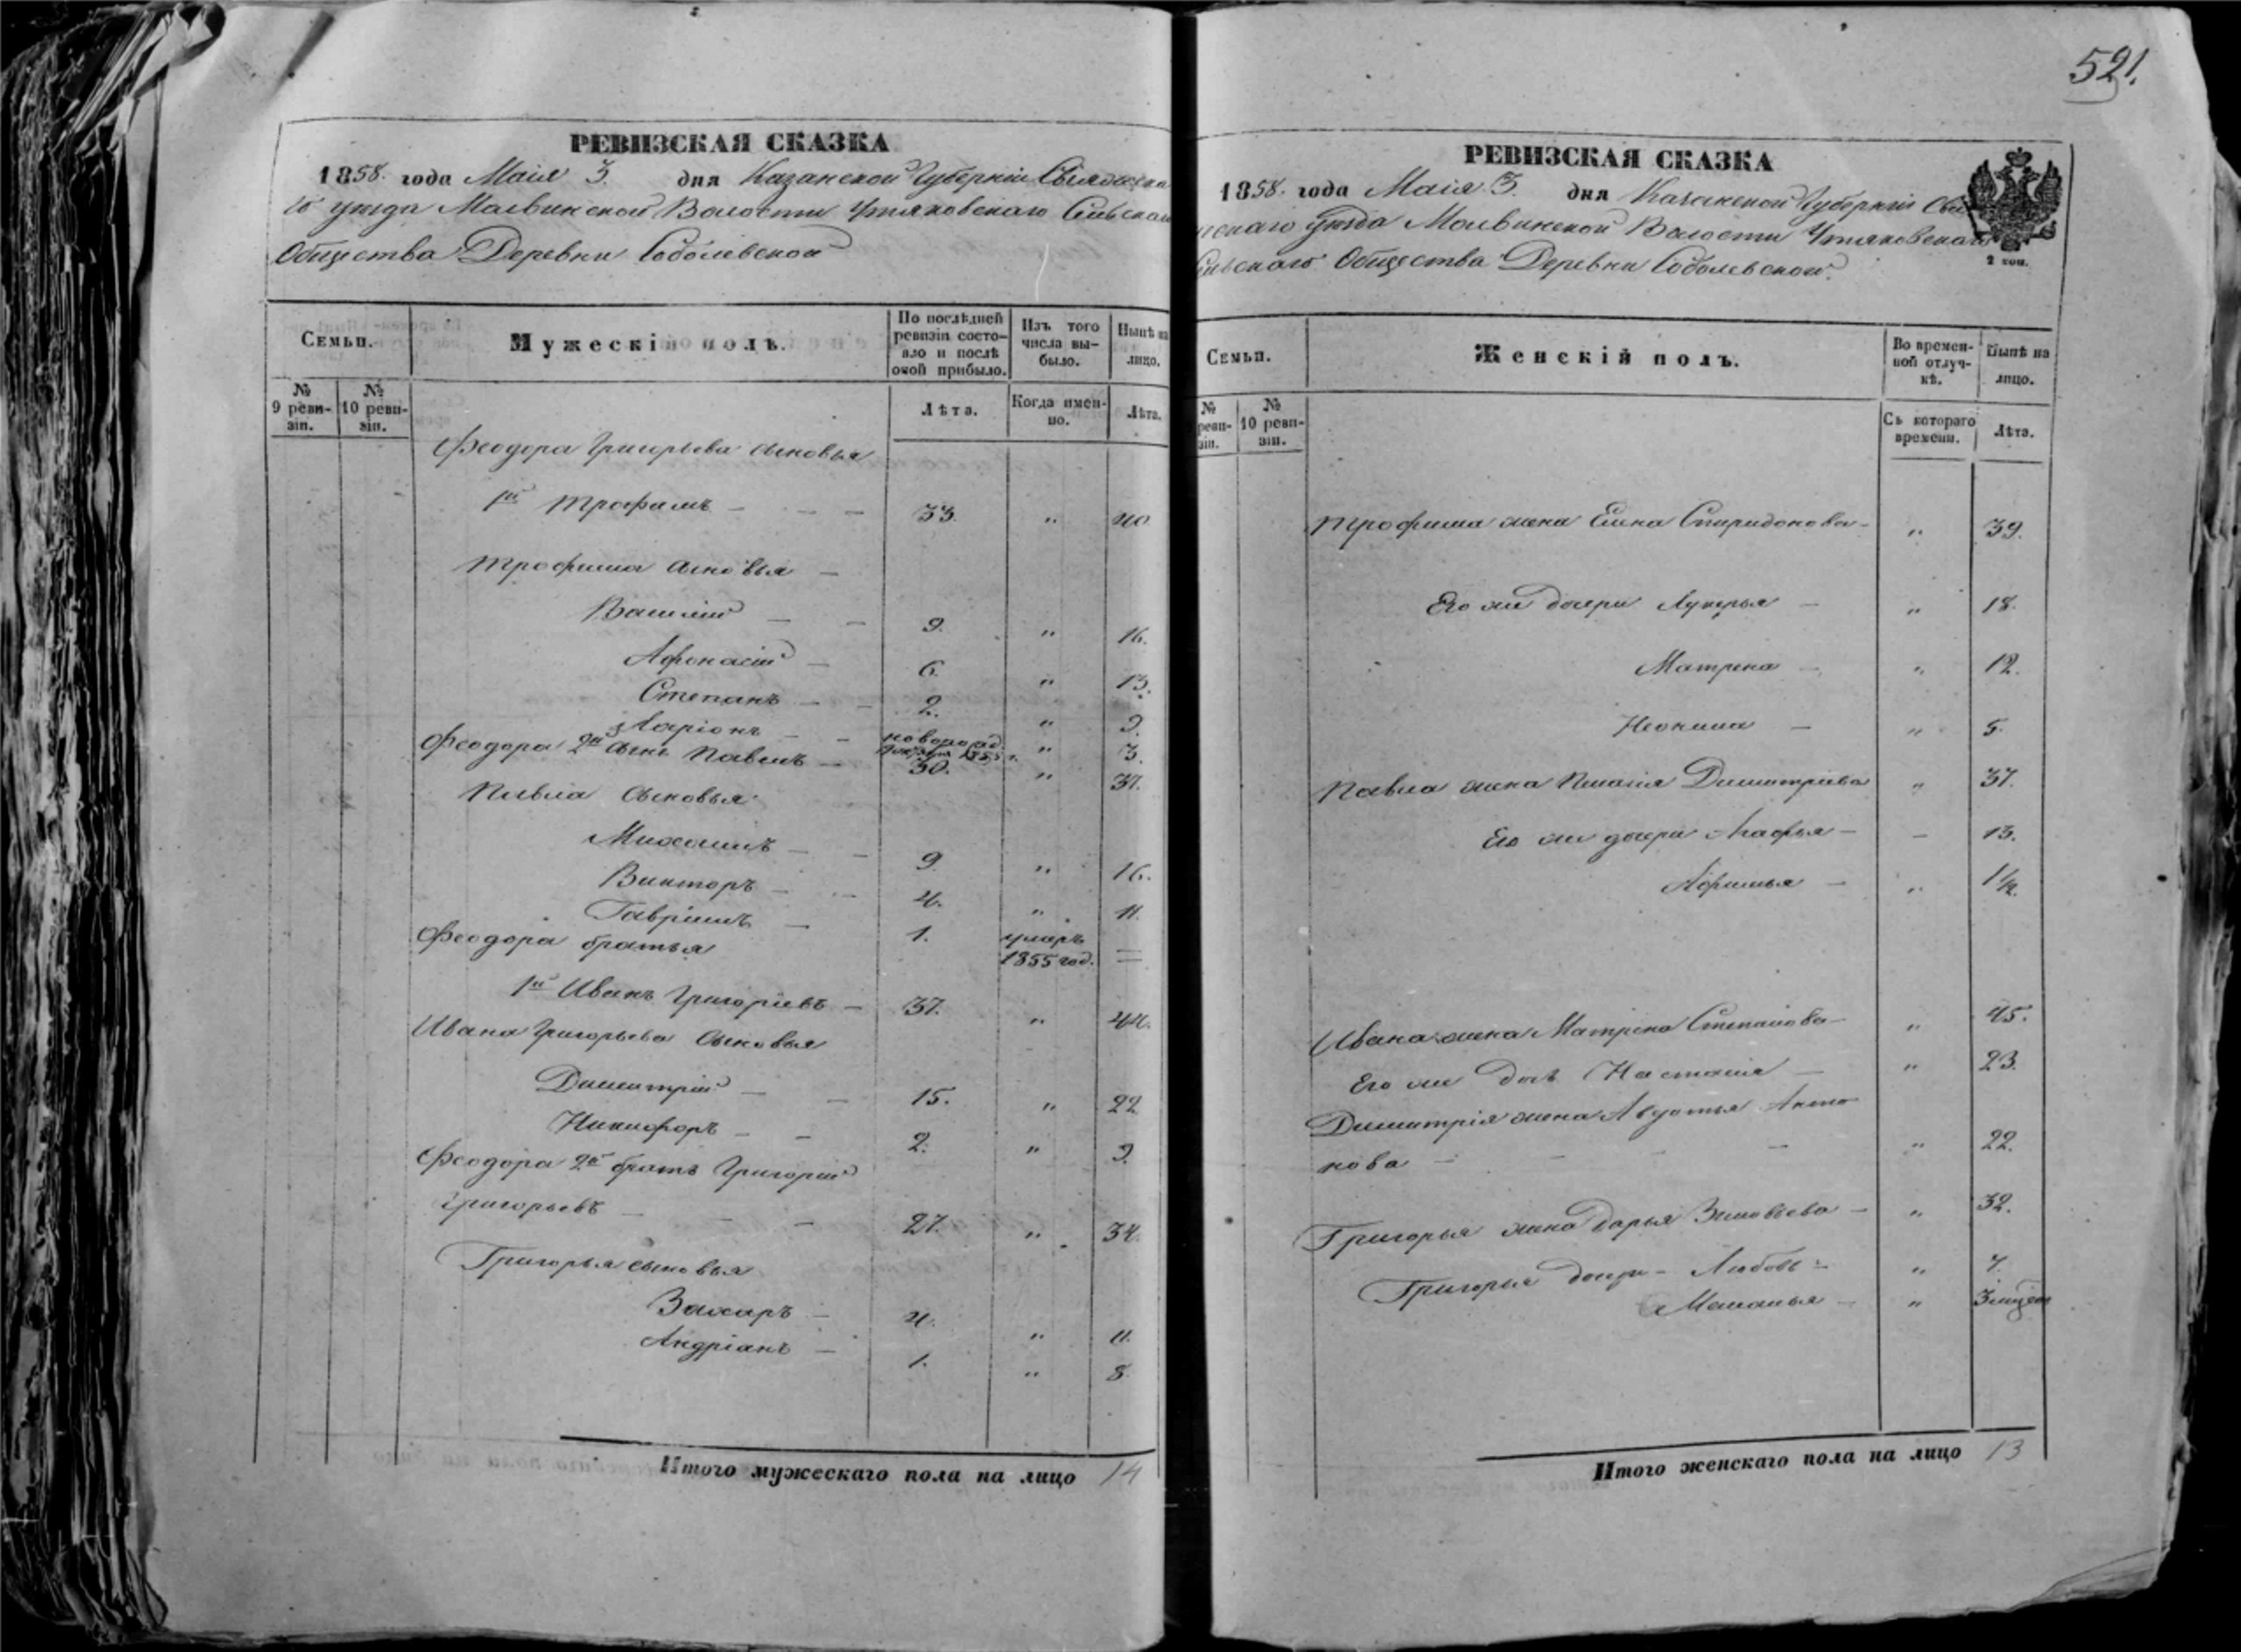 РЕВИЗСКАЯ СКАЗКА
1858. года Маія 3. дня Казанской Губерніи Свіяжска
го уезда Молвинской Волости Утяковскаго Сельскаго
Общества Деревни Соболевской
Семьи.
Мужескій полъ.
По послѣдней ревизіи состояло и послѣ оной прибыло.
Изъ того числа выбыло.
Нынѣ на лицо.
№ 9 ревизіи.
№ 10 ревизіи.
Лѣта.
Когда именно.
Лѣта.
Феодора Григорьева сыновья
1й Трофимъ — 33. " 40
Трофима сыновья —
Василій — 9. " 16.
Афонасій — 6. " 13.
Степанъ — 2. " 9.
Ларіонъ — новорожд. 1855 г. " 3.
Феодора 2й сынъ Павелъ — 30. " 37.
Павла сыновья
Михаилъ — 9. " 16.
Викторъ — 4. " 11.
Гаврилъ — 1. умеръ 1855 год. =
Феодора братья
1й Иванъ Григорьевъ — 37. " 44.
Ивана Григорьева сыновья
Димитрій — 15. " 22
Никифоръ — 2. " 9.
Феодора 2й братъ Григорій
Григорьевъ — 27. " 34.
Григорья сыновья
Захаръ — 4. " 11.
Андріанъ — 1. " 8.
Итого мужескаго пола на лицо 14
521.
РЕВИЗСКАЯ СКАЗКА
1858. года Маія 3. дня Казанской Губерніи Свія
жскаго уезда Молвинской Волости Утяковскаго
Сельскаго Общества Деревни Соболевской.
2 коп.
Семьи.
Женскій полъ.
Во временной отлучкѣ.
Нынѣ на лицо.
№ реви-зіи.
№ 10 ревизіи.
Съ котораго времени.
Лѣта.
Трофима жена Елена Спиридонова — " 39.
Его же дочери Лукерья — " 18.
Матрена — " 12.
Неонила — " 5.
Павла жена Пелагія Димитріева " 37.
Его же дочери Агафья — – 13.
Афимья — " 1½.
Ивана жена Матрена Степанова — " 45.
Его же дочь Настасія — " 23.
Димитрія жена Авдотья Анто
нова — " 22.
Григорья жена Дарья Зиновьева — " 32.
Григорья дочери — Любовь — " 7.
Маланья — " 3 мѣсяц
Итого женскаго пола на лицо 13